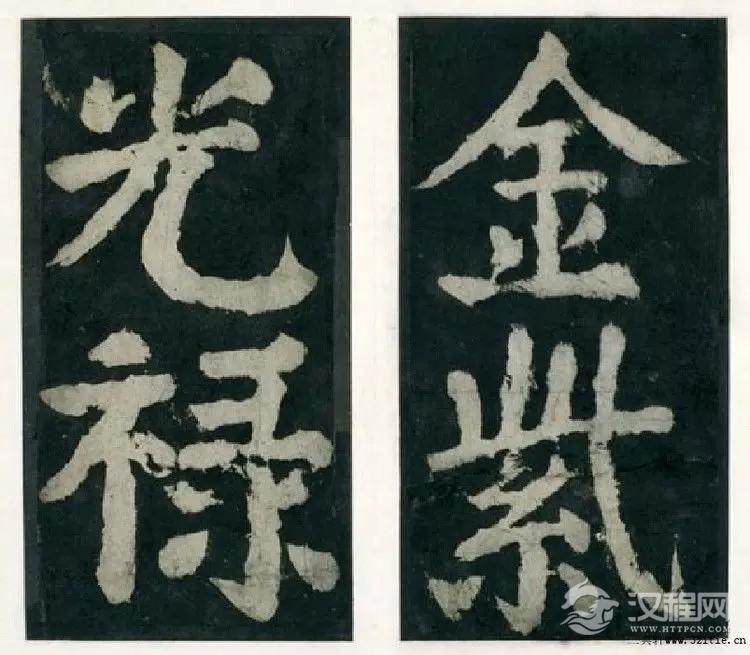 金紫
光禄
汉程网
WWW.HTTPCN.COM
www.521tie.cn